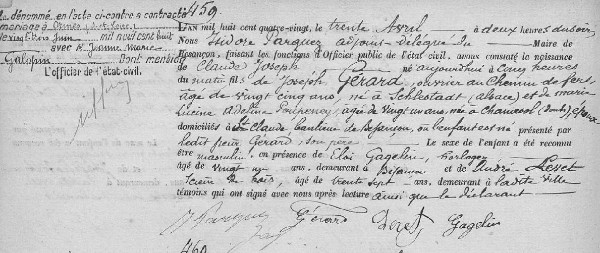 La dénommé en l'acte ci-contre a contracté
mariage à Ornans (
le vingt trois Juin mil neuf cent huit
avec Mlle Jeanne Marie
Galoppin Dont mention
L'officier de l'état civil.
459
L'AN mil huit cent quatre-vingt, le trente Avril à deux heures du soir
Nous Isidore Parguez adjoint délégué du Maire de
Besançon, faisant les fonctions d'Officier public de l'état civil, avons constaté la naissance
de Claude Joseph né aujourd'hui à cinq heures
du matin fils de Joseph Gérard, ouvrier au Chemin de fer,
âgé de vingt cinq ans, né à Schlestadt (Alsace) et de Marie
Lucine Adeline âgée de vingt un ans née à (Doubs), époux
domiciliés à St Claude, banlieue de Besançon, où l'enfant est né présenté par
ledit sieur Gérard son père. Le sexe de l'enfant a été reconnu
être masculin, en présence de Eloi Gagelin, horloger
âgé de vingt ans, demeurant à Besançon et de André
Scieur de bois, âgé de trente sept ans, demeurant à ladite ville
témoins qui ont signé avec nous après lecture ainsi que le déclarant
Gérard Gagelin
460